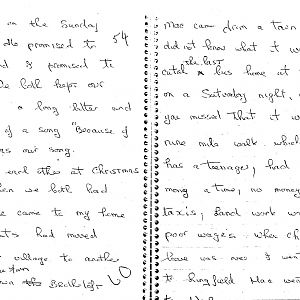 in the Sunday
promised to 54
I promised to
We both kept our
a long letter and
of a song "Because of
our song.
each other at Christmas
when we both had
came to my home
had moved
village to another
town
60
Mac came from a town
did not know what it w
the last
catch a bus home at
on a Saturday night,
you missed that it w
nine mile walk which
has a teenager, had
many a time, no money
taxis, Land work w
poor wages. when ch
have was over I went
to Lingfield. Mac went